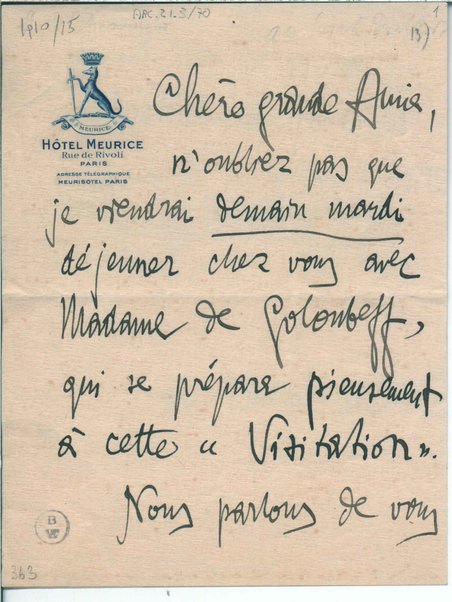 1910/15
ARC.21.3/70
1
13)
MEURICE
HÔTEL MEURICE
Rue de Rivoli
PARIS
ADRESSE TÉLÉGRAPHIQUE
MEURISOTEL PARIS
Chère grande Amie,
n'oubliez pas que
je viendrai demain mardi
déjeuner chez vous avec
Madame de Goloubeff,
qui se prépare pieusement
à cette « Visitation ».
Nous parlons de vous
363